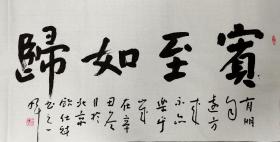 賓至如歸
有朋
自
遠方
來
不亦
樂乎
歲
在辛
丑冬
月於
北京